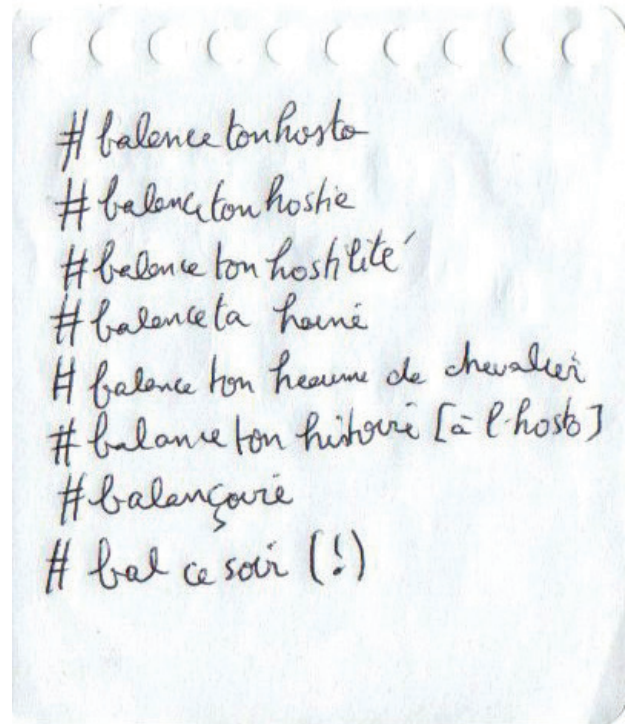 #balancetonhosto
#balancetonhostie
#balance ton hostilité
#balance ta haine
#balance ton heaume de chevalier
#balance ton histoire [à l'hosto]
#balançoire
# bal ce soir (!)